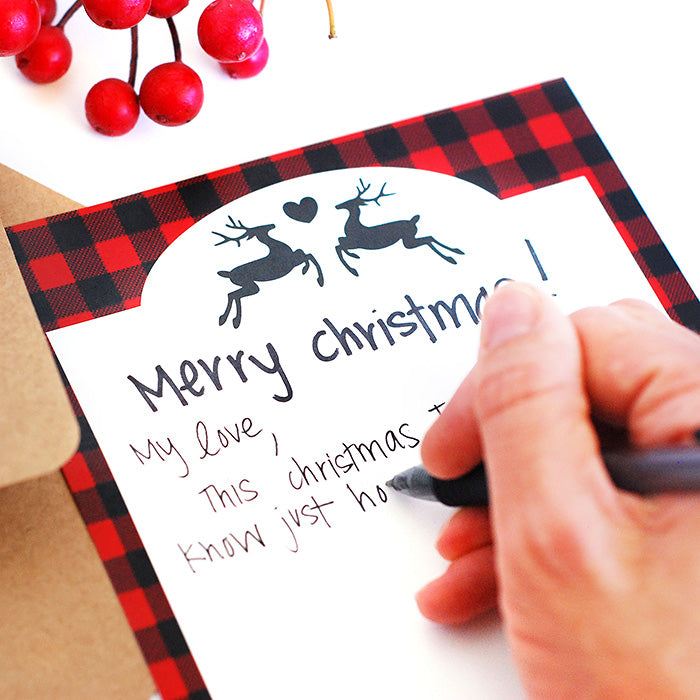 Merry christmas!
My love,
This christmas I
know just ho